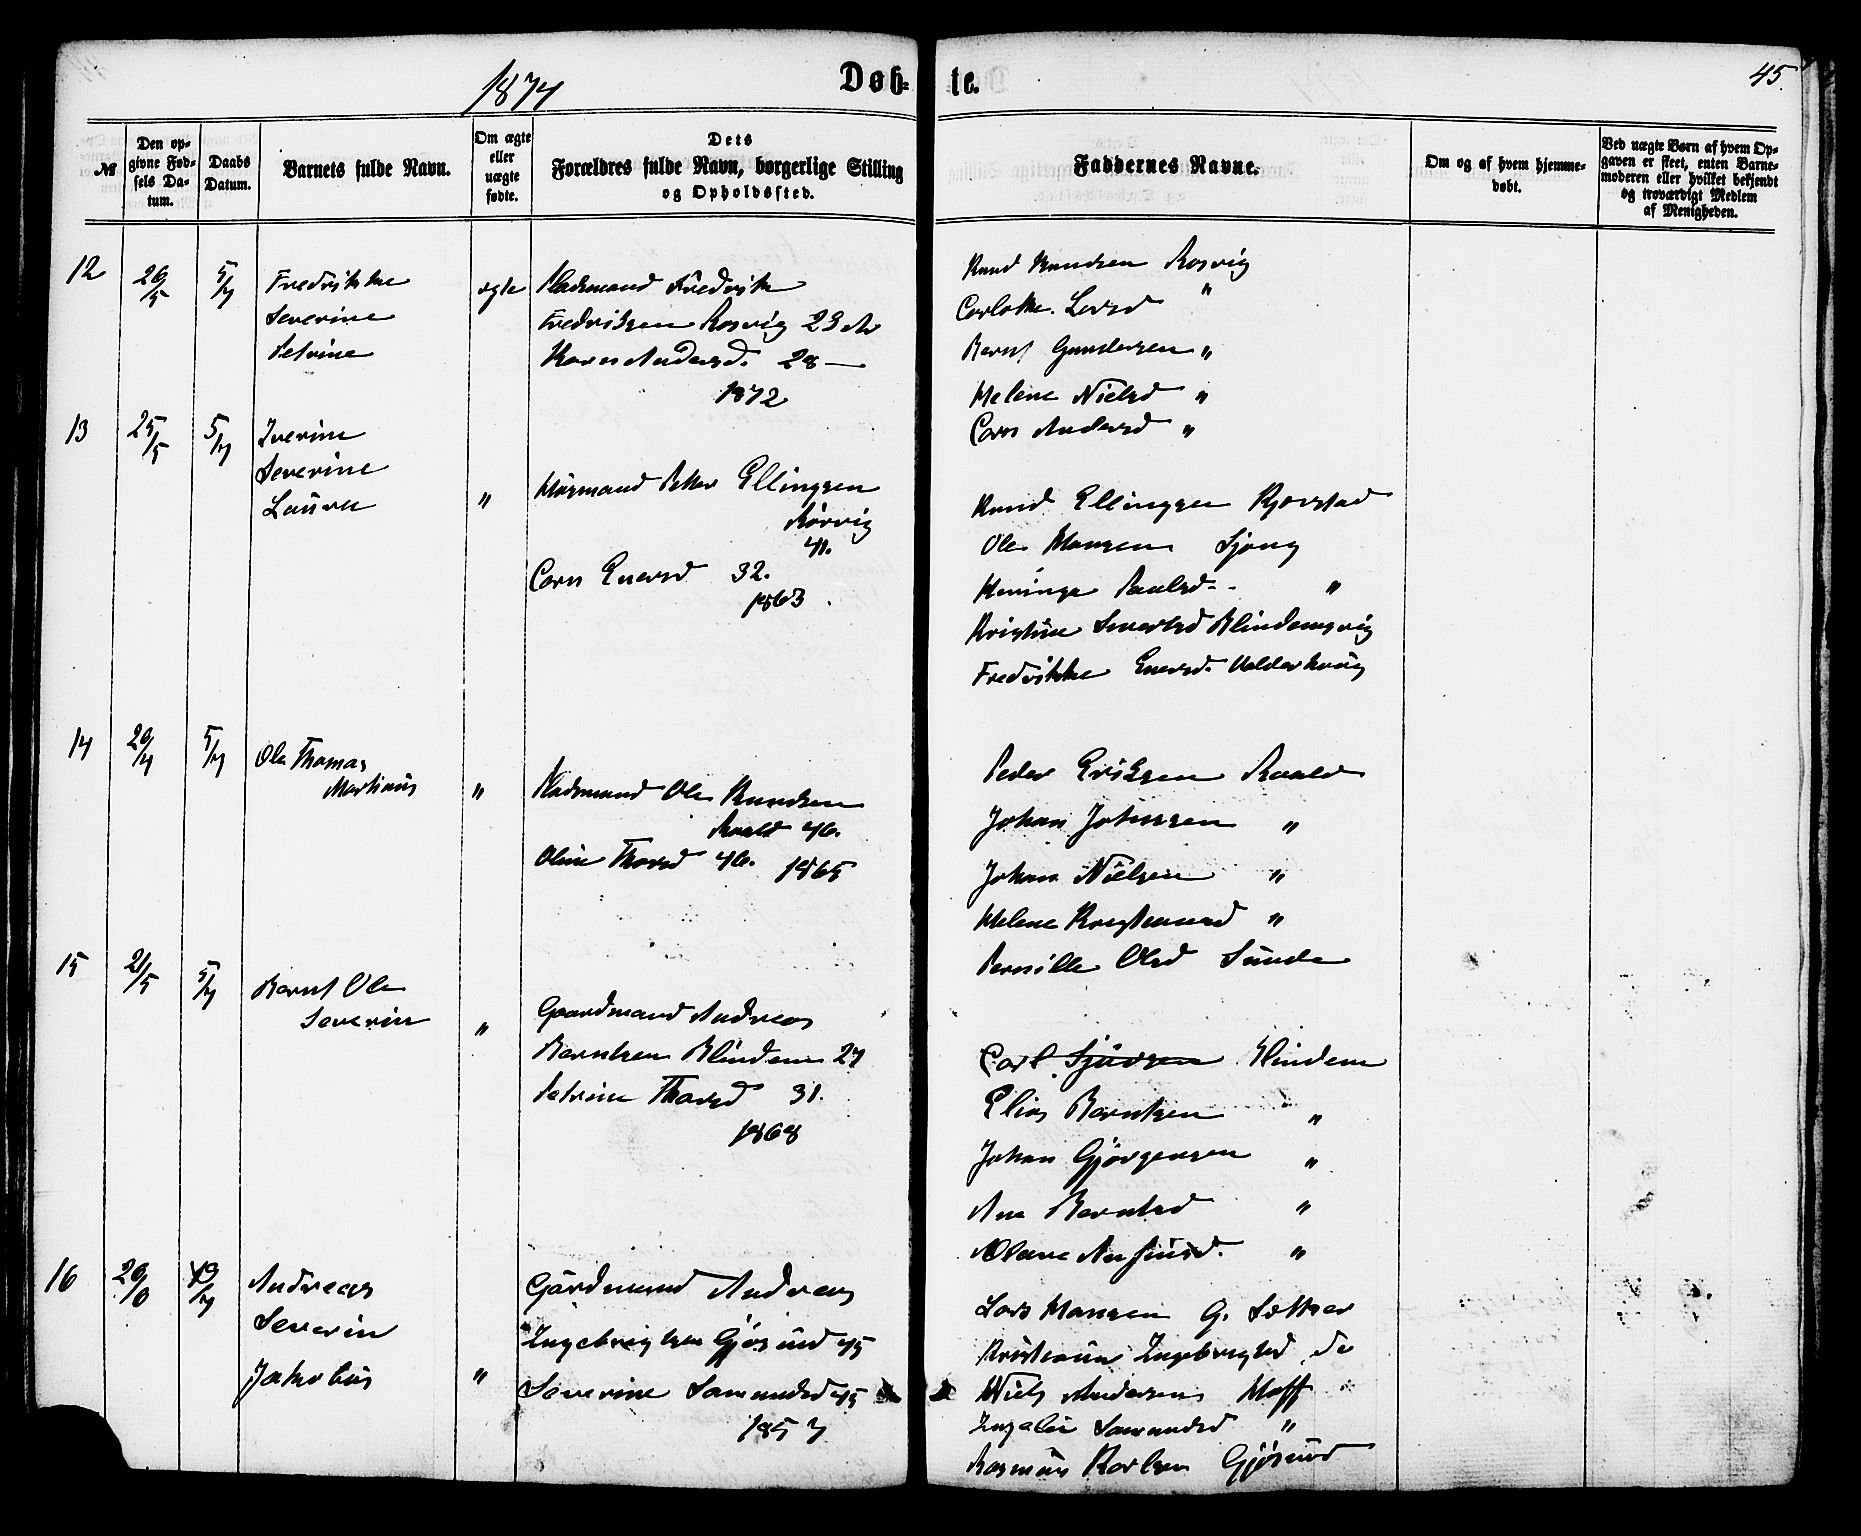 1874
Døb-
te.
45.
№
Den op-
givne Fød-
sels Da-
tum.
Daabs
Datum.
Barnets fulde Navn.
Om ægte
eller
uægte
fødte.
Dets
Forældres fulde Navn, borgerlige Stilling
og Opholdssted.
Faddernes Navne.
Om og af hvem hjemme-
døbt.
Ved uægte Børn af hvem Op-
gaven er skeet, enten Barne-
moderen eller hvilket bekjendt
og troværdigt Medlem
af Menigheden.
12
26/5
5/7
Fredrikke
Severine
Petrine
ægte
Pladsmand Fredrik
Fredriksen Rosvig 23 Ar
Karen Andersd. 28 —
1872
Knud Knudsen Rosvig
Carlotte Larsd "
Bernt Gundersen "
Helene Nielsd "
Caren Andersd "
13
25/5
5/7
Iverine
Severine
Laura
"
Husmand Peter Ellingsen
Rørvig
41.
Caren Enersd 32.
1863.
Knud Ellingsen Kjerstad
Ole Hansen Sjong
Paulsd "
Kristine Sivertsd Blindemsvig
Fredrikke Enersd. Valderhaug
14
20/4
5/7
Ole Thomas
Martinus
"
Pladsmand Ole Knudsen
Roald 46.
Oline Thorsd 46. 1865
Peder Eriksen Roald
Johan Johnsen "
Johan Nielsen "
Helene Kristiansd "
Pernille Olsd Sunde
15
21/5
5/7
Bernt Ole
Severin
"
Gaardmand Andreas
Berntsen Blindem 27
Petrine Thorsd 31.
1868
Carl Sjursen Blindem
Elias Berntsen "
Johan Gjørgensen "
Ane Berntsd "
Olave "
16
26/6
19/7
Andreas
Severin
Jakobus
"
Gårdmand Andreas
Ingebrigtsen Gjøsund 45
Severine Samundsd 45
1857
Lars Hansen G. Sætter
Kristiane Ingebrigtsd do
Niels Andersen Hoff
Samundsd "
Rasmus Karlsen Gjøsund